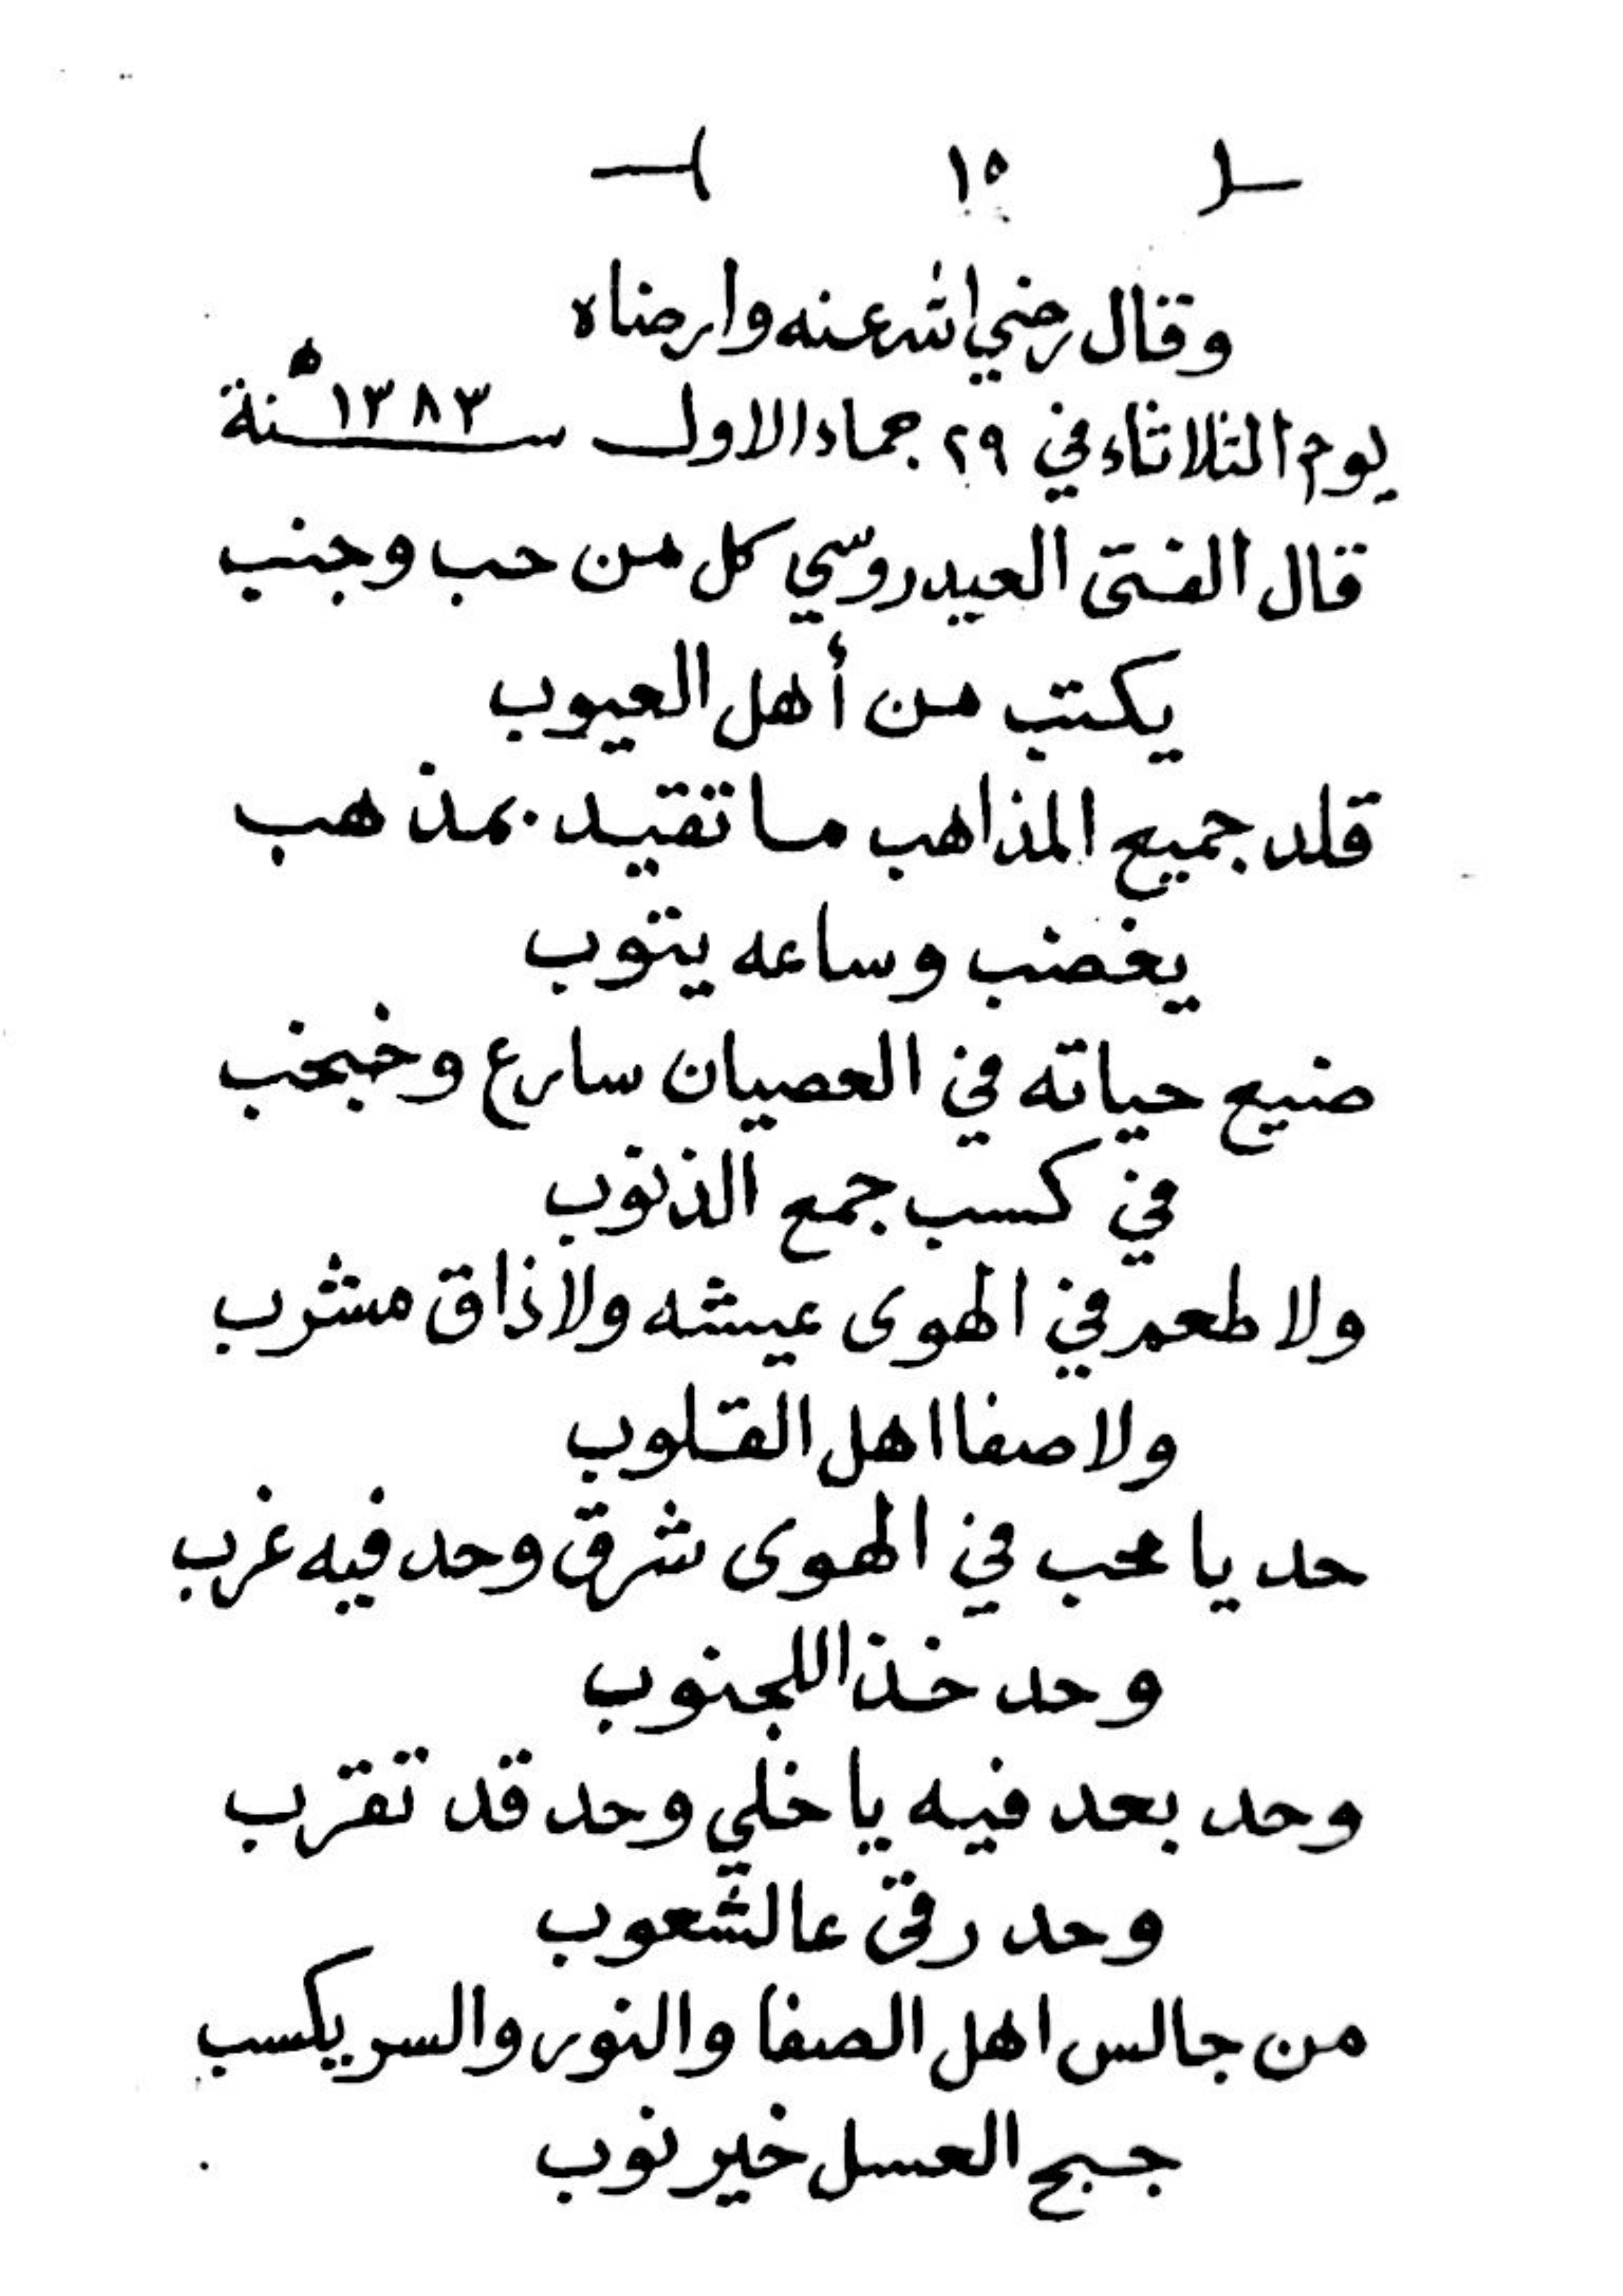 ١٥
وقال رضي الله عنه وارضاه
يوم الثلاثاء في ٢٩ جماد الاول سنة ١٣٨٣ ه
قال الفتى العيدروسي كل من حب وجنب
يكتب من أهل العيوب
قلد جميع المذاهب ما تقيد بمذهب
يغضب وساعه يتوب
ضيع حياته في العصيان سارع وخبخب
في كسب جمع الذنوب
ولا طعم في الهوى عيشه ولا ذاق مشرب
ولا صفا اهل القلوب
حد يا محب في الهوى شرق وحد فيه غرب
وحد خذا اللجنوب
وحد بعد فيه يا خلي وحد قد تقرب
وحد رقى عا الشعوب
من جالس اهل الصفا والنور والسر يكسب
جبح العسل خير نوب